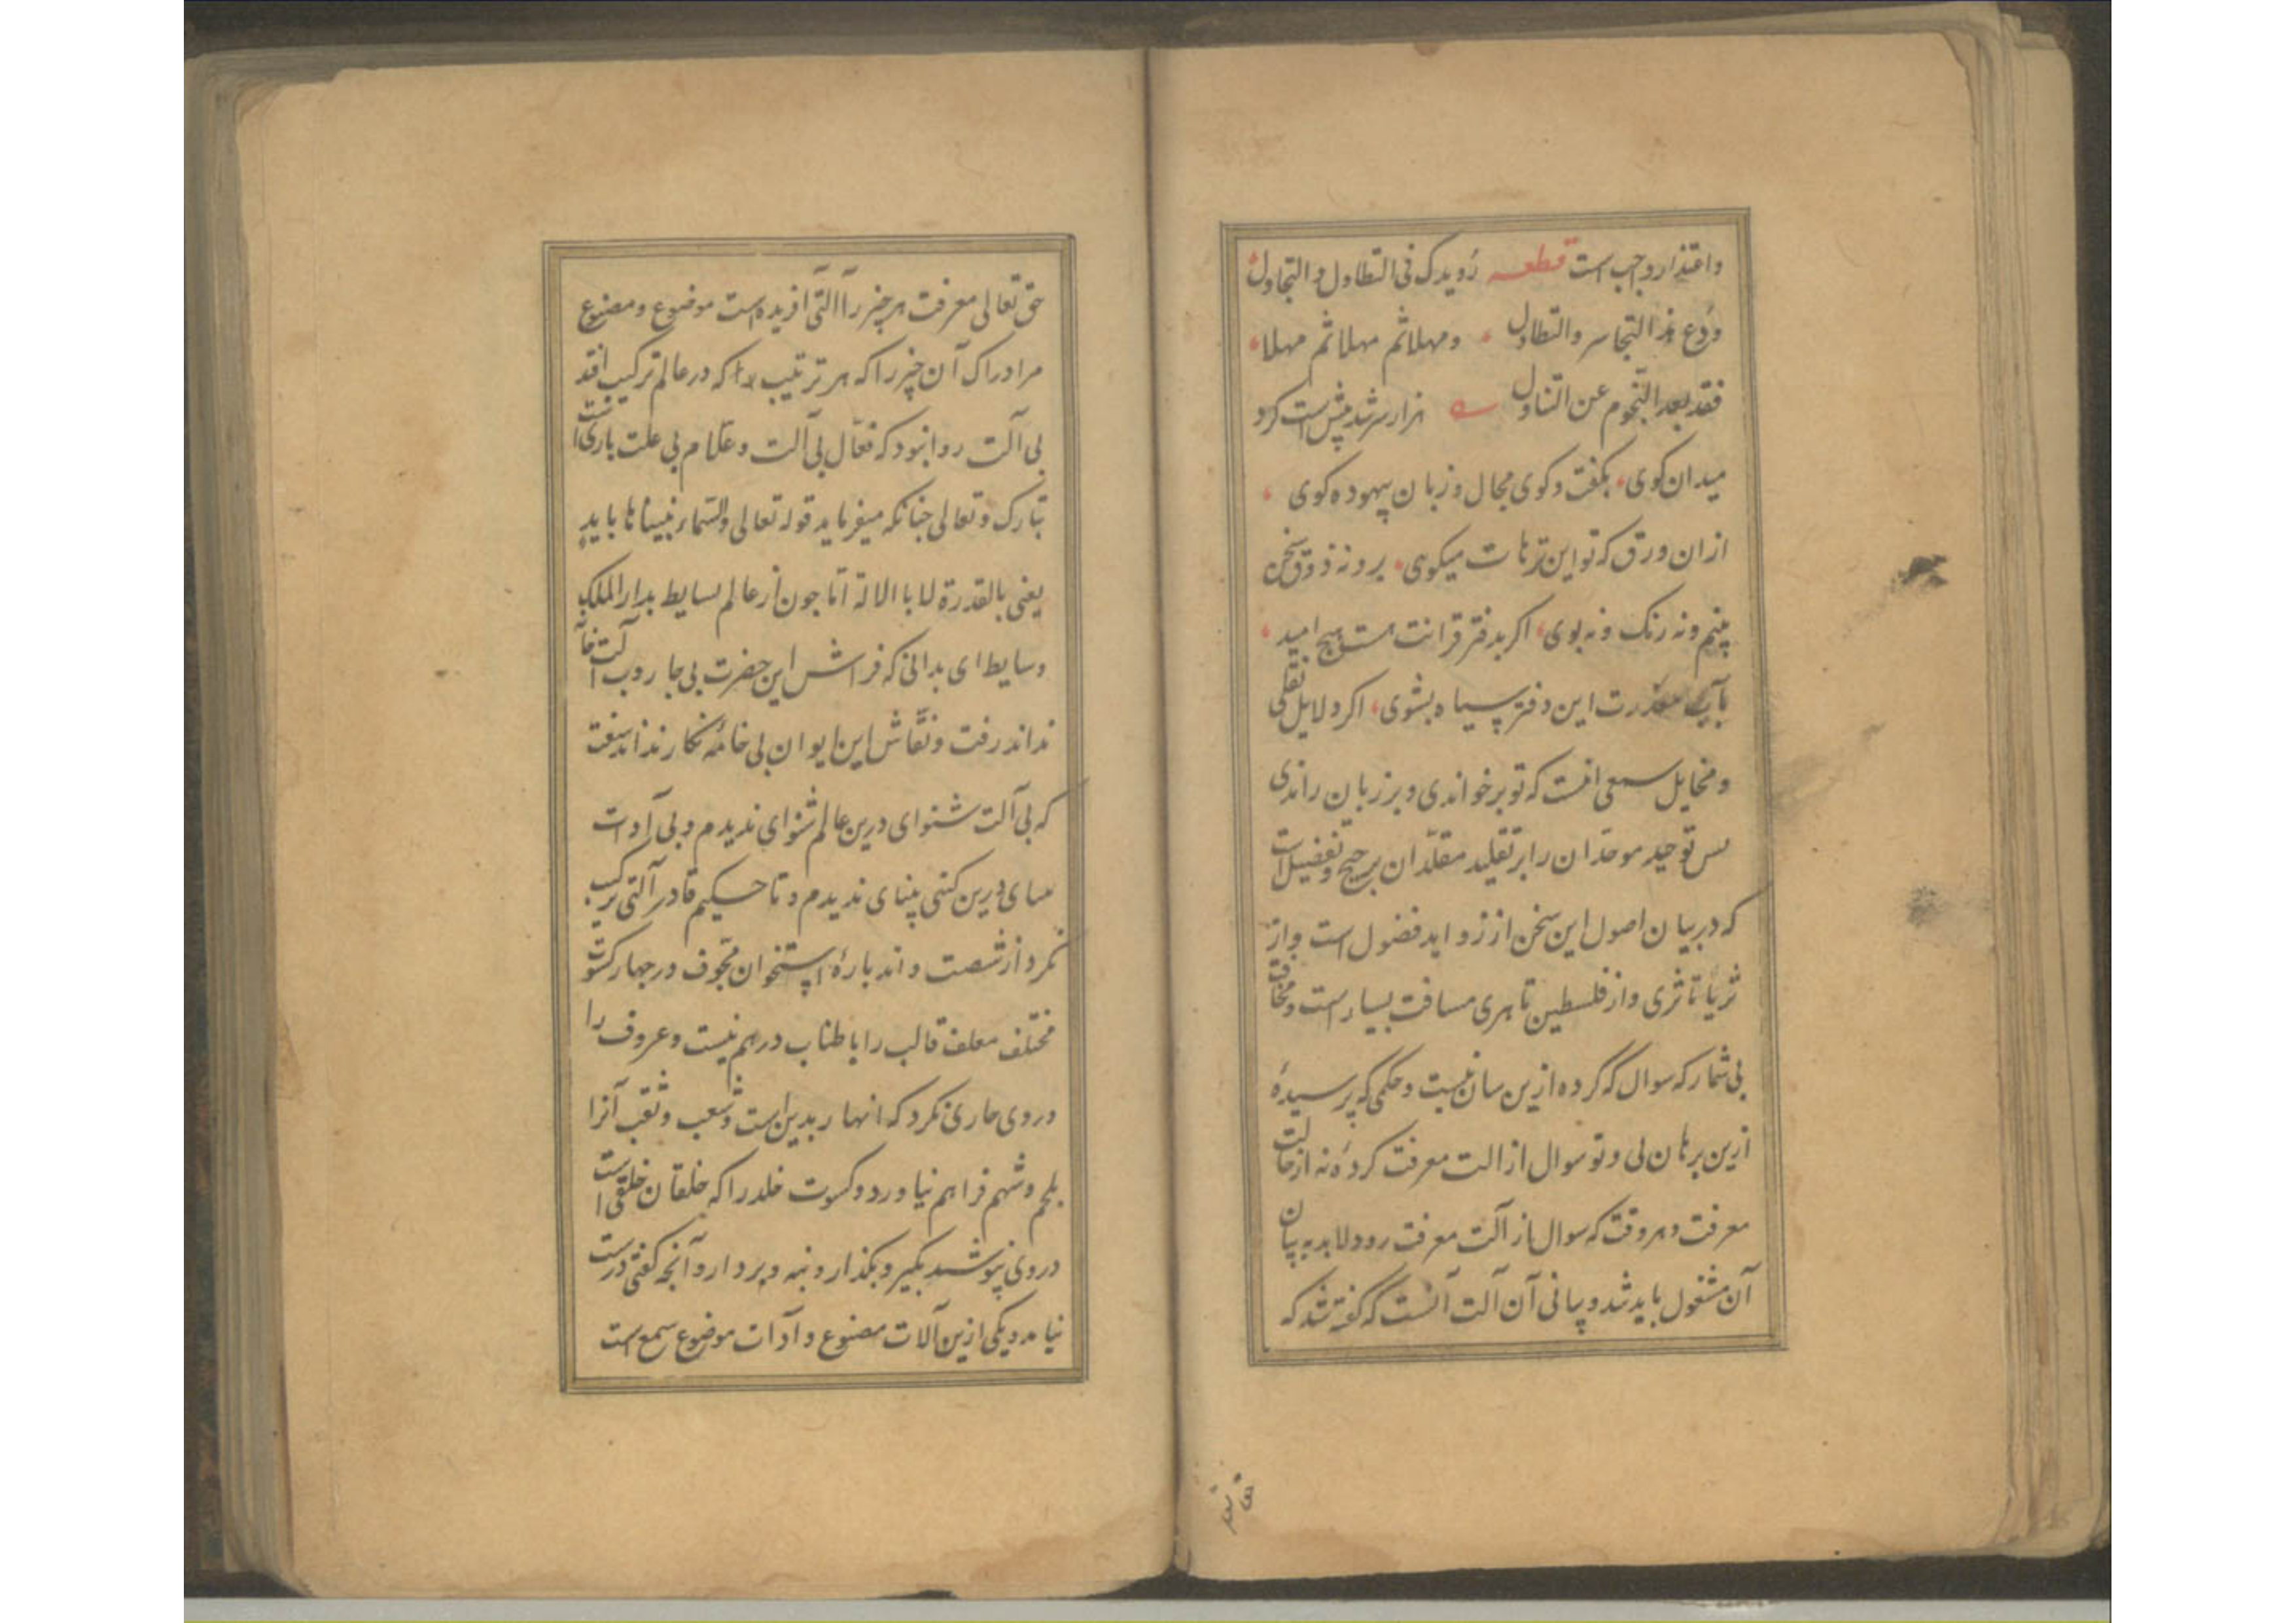 واعتذار واجب است قطعه رویدک فی التطاول والتجاول
ودع هذا التجاسر والتطاول ومهلا ثم مهلا ثم مهلا
فقد بعد النجوم عن التناول هزار سرشد پیش است کرد
میدان کوی بکفت وکوی مجال وزبان بیهوده کوی
ازان ورق که تو این ترهات میکوی برو نه ذوق سخن
بینم ونه رنک ونه بوی اکر بدفتر قرانت هست هیچ امید
بآب معذرت این دفتر سیاه بشوی اکر دلایل نقلی
ومخایل سمعی انست که تو برخواندی وبر زبان راندی
بس توحید موحدان را بر تقلید مقلدان ترجیح وتفضیل است
که در بیان اصول این سخن از زواید فضول است واز
ثریا تا ثری واز فلسطین تا هری مسافت بسیار است ومخافت
بی شمار که سوال که کرده ازین سان نیست وحکمی که پرسیدهٔ
ازین برهان نی وتو سوال از الت معرفت کردهٔ نه از حالت
معرفت وهر وقت که سوال از آلت معرفت رود لابد به بیان
آن مشغول باید شد وبیانی آن آلت آنست که گفته شد که
حق تعا
حق تعالی معرفت هر چیز را آلتی آفریده است موضوع ومصنوع
مر ادراک آن چیز را که هر ترتیب را که در عالم ترکیب افتد
بی آلت روا نبود که فعال بی آلت وعلام بی علت باری است
تبارک وتعالی جنانکه میفرماید قوله تعالی والسماء بنیناها بایید
یعنی بالقدرة لا بالالة اما جون از عالم بسایط بدار الملک
وسایط ای بدانی که فراش این حضرت بی جاروب آلت خانه
نداند رفت ونقاش این ایوان بی خامه نکار نداند سفت
که بی آلت شنوای درین عالم شنوای ندیدم وبی آدات
بینای درین کیتی بینای ندیدم وتا حکیم قادر آلتی ترکیب
نکرد از شصت واند بارهٔ استخوان مجوف در جهار کسوت
مختلف قالب را با طناب در هم نبست وعروف را
در وی جاری نکرد که انهار بدین است وشعب وثقب آنرا
بلحم وشحم فراهم نیاورد وکسوت خلد را که خلقان خلقی است
در وی نپوشید بکیر وبکذار وبنه وبردار وآنجه کفتی درست
نیامد ویکی ازین آلات مصنوع وآدات موضوع سمع است